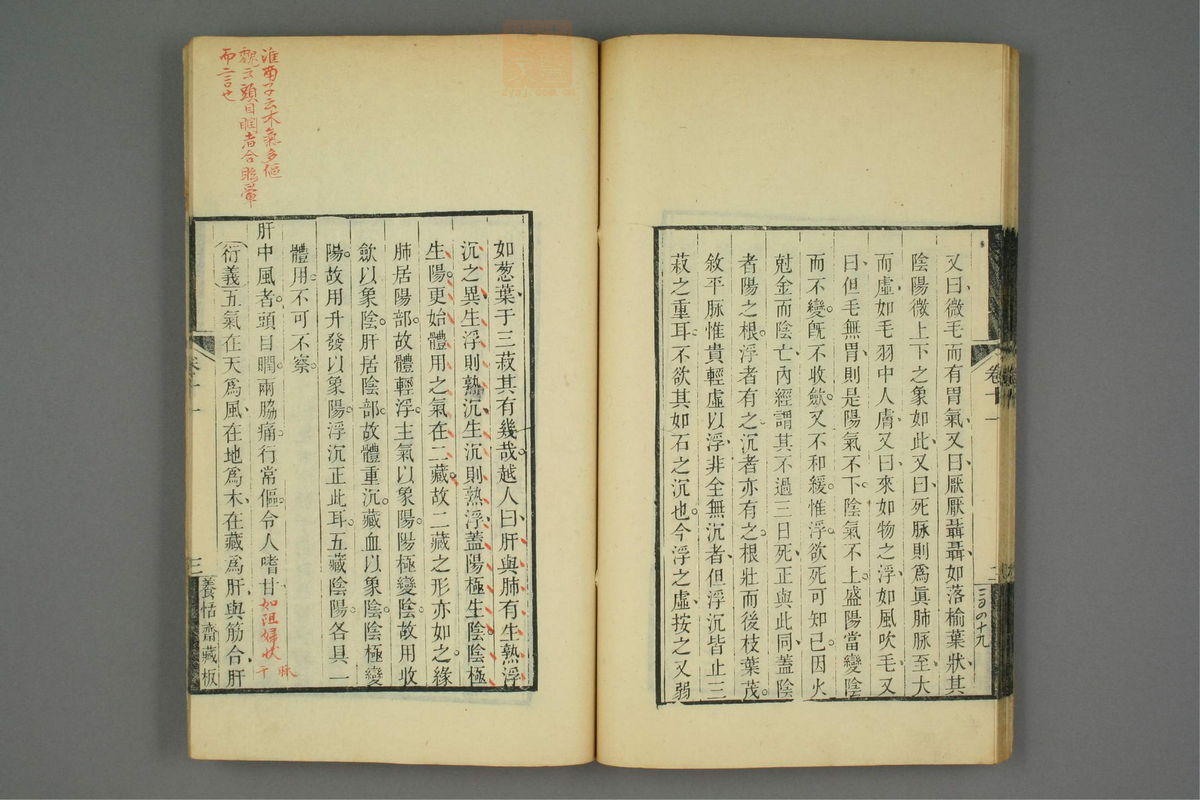 又曰微毛而有胃氣又曰厭厭聶聶如落榆葉狀其
陰陽微上下之象如此又曰死脉則爲眞肺脉至大
而虛如毛羽中人膚又曰來如物之浮如風吹毛又
曰但毛無胃則是陽氣不下陰氣不上盛陽當變陰
而不變既不收歛又不和緩惟浮欲死可知已因火
尅金而陰亡內經謂其不過三日死正與此同蓋陰
者陽之根浮者有之沉者亦有之根壯而後枝葉茂
敘平脉惟貴輕虛以浮非全無沉者但浮沉皆止三
菽之重耳不欲其如石之沉也今浮之虛按之又弱
卷十一
二
如葱葉于三菽其有幾哉越人曰肝與肺有生熟浮
沉之異生浮則熟沉生沉則熟浮蓋陽極生陰陰極
生陽更始體用之氣在二藏故二藏之形亦如之緣
肺居陽部故體輕浮主氣以象陽陽極變陰故用收
歛以象陰肝居陰部故體重沉藏血以象陰陰極變
陽故用升發以象陽浮沉正此耳五藏陰陽各具一
體用不可不察
肝中風者頭目瞤兩脇痛行常傴令人嗜甘如阻婦狀
衍義五氣在天爲風在地爲木在藏爲肝與筋合肝
卷十一
三
養恬齋藏板
淮南子云木氣多傴
魏云頭目瞤者合眩暈
而言也